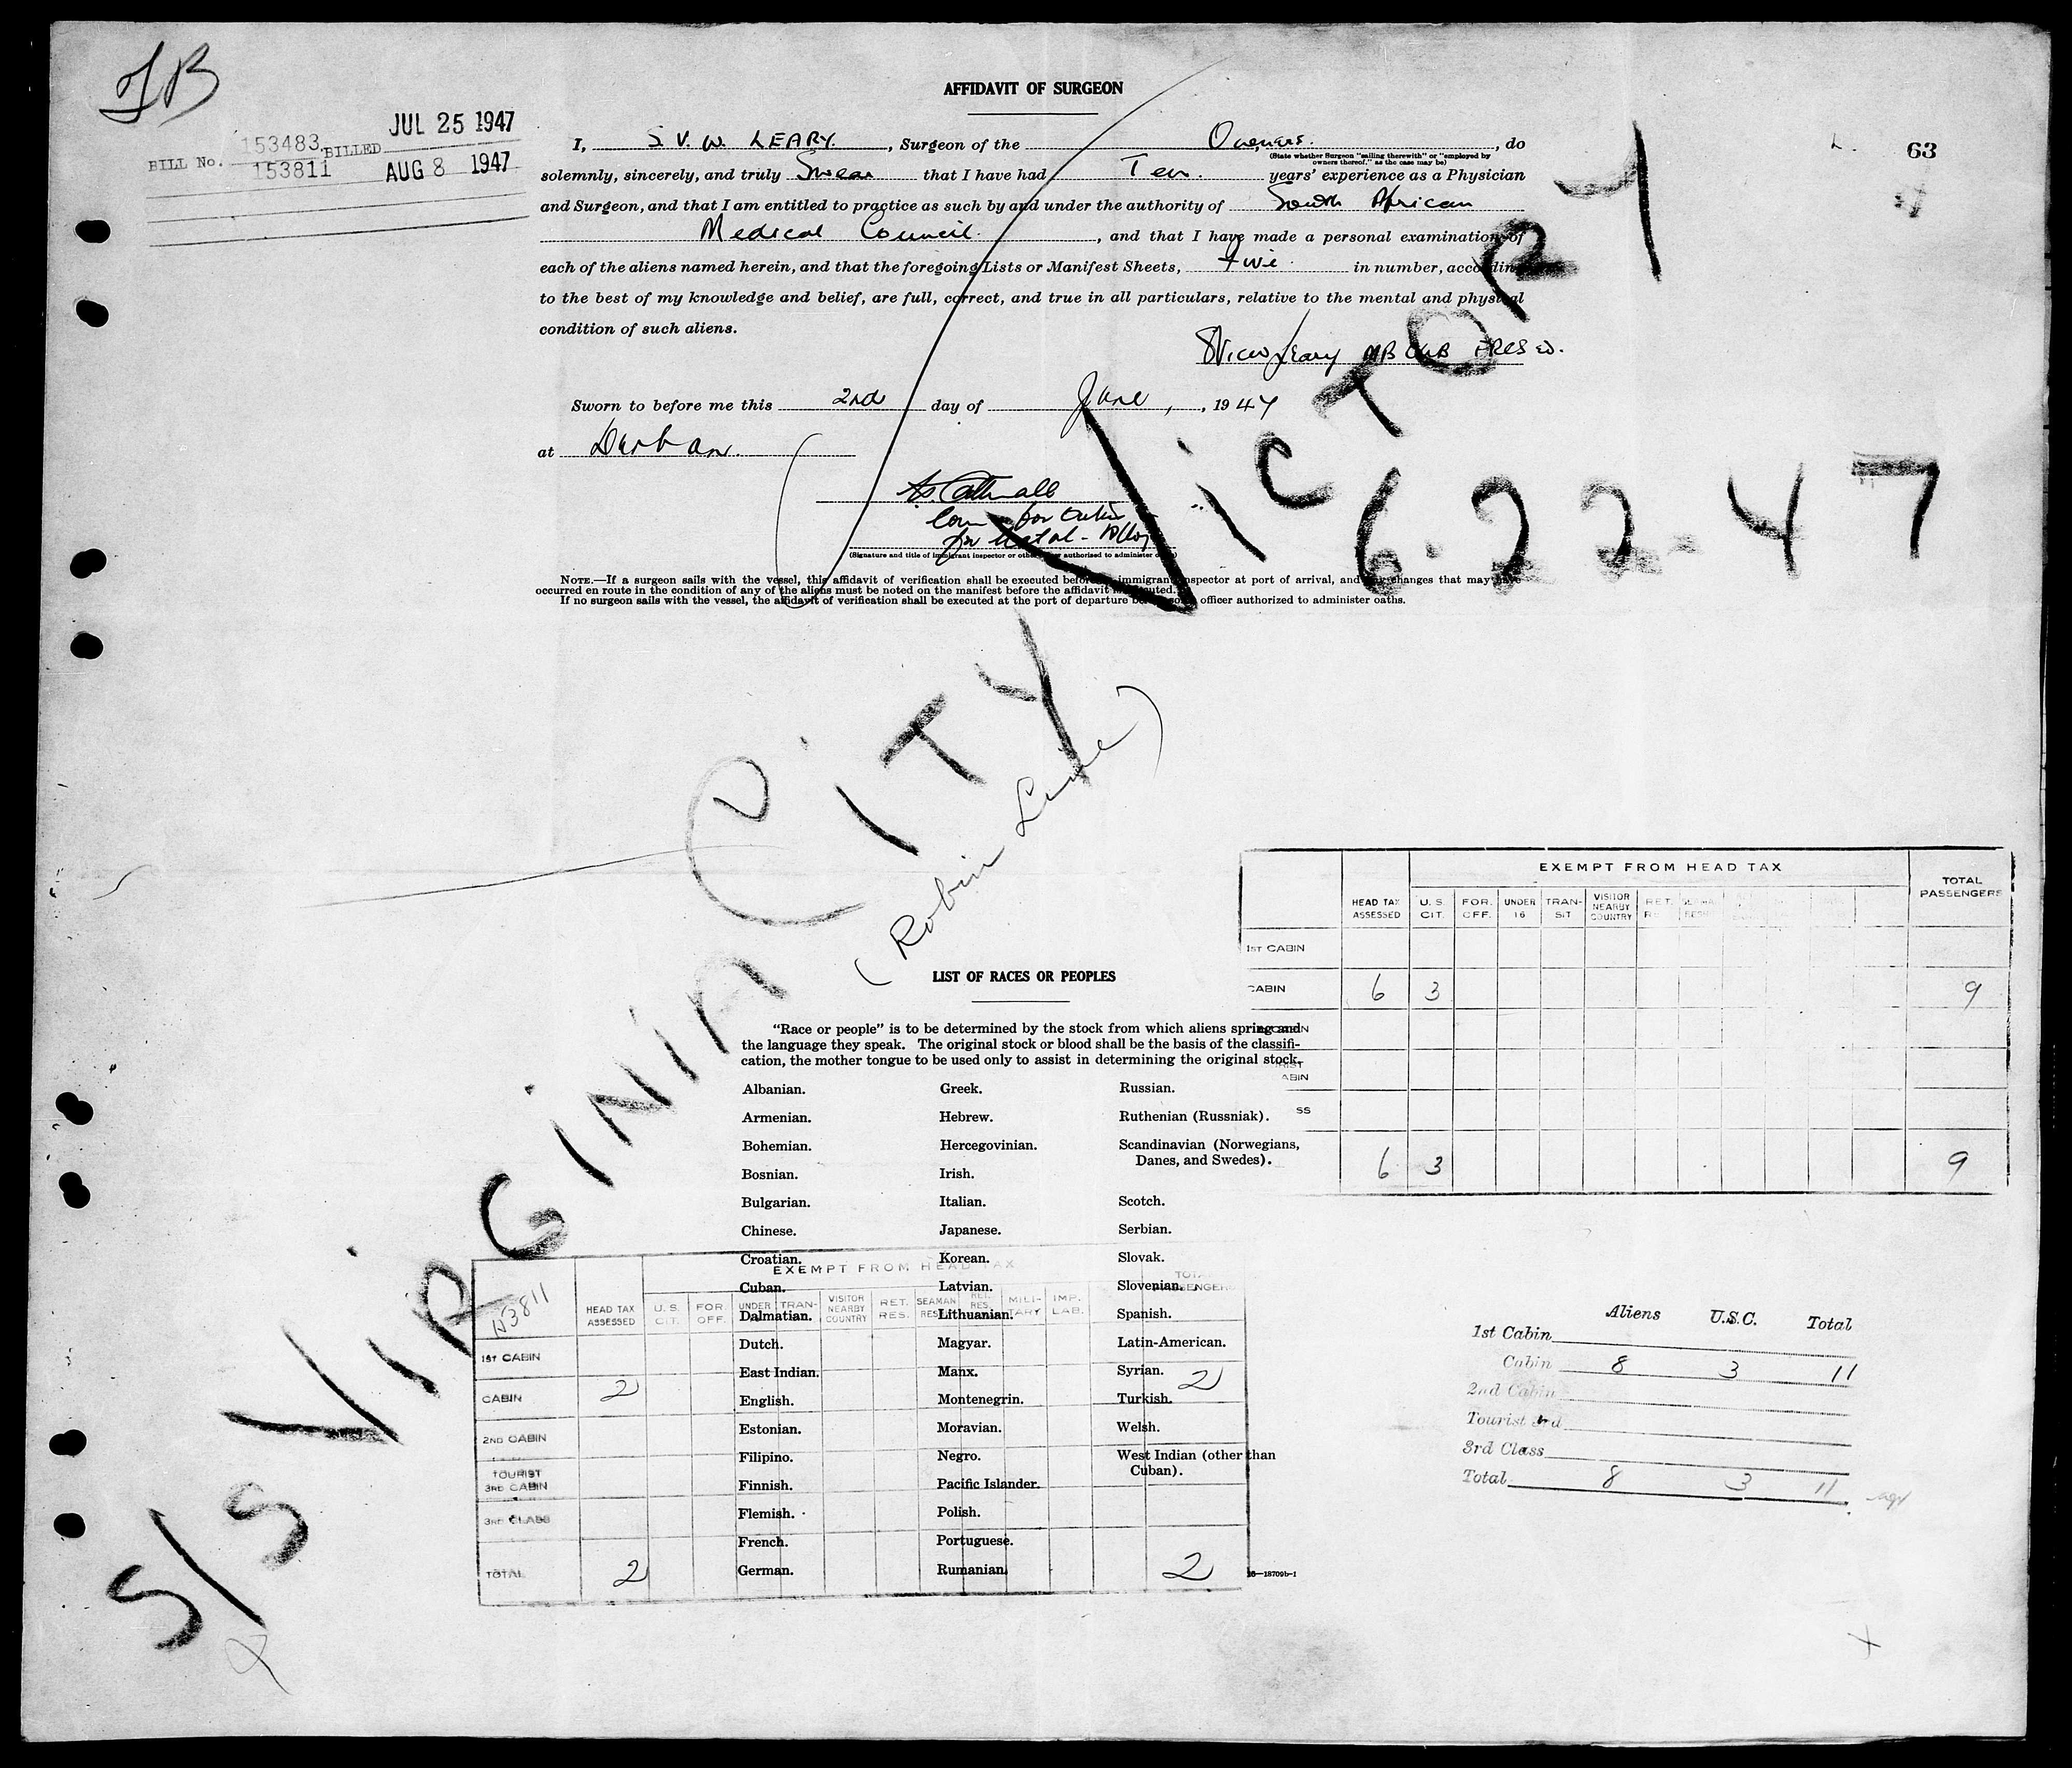 JB
BILL No. 153483 BILLED JUL 25 1947
153811 AUG 8 1947
63
L.
AFFIDAVIT OF SURGEON
I, S. V. W. LEARY. , Surgeon of the Owners. , do
(State whether Surgeon "sailing therewith" or "employed by
owners thereof," as the case may be)
solemnly, sincerely, and truly Swear that I have had Ten. years' experience as a Physician
and Surgeon, and that I am entitled to practice as such by and under the authority of South African
Medical Council. , and that I have made a personal examination of
each of the aliens named herein, and that the foregoing Lists or Manifest Sheets, in number, according
to the best of my knowledge and belief, are full, correct, and true in all particulars, relative to the mental and physical
condition of such aliens.
Leary MB ChB FRCS ED.
Sworn to before me this 2nd day of June, , 1947
at Durban.
(Signature and title of immigrant inspector or other officer authorized to administer oaths)
NOTE.—If a surgeon sails with the vessel, this affidavit of verification shall be executed before immigrant inspector at port of arrival, and any changes that may have
occurred en route in the condition of any of the aliens must be noted on the manifest before the affidavit is executed.
If no surgeon sails with the vessel, the affidavit of verification shall be executed at the port of departure before some officer authorized to administer oaths.
S/S VIRGINIA CITY VICTORY
6-22-47
(Robin Line)
EXEMPT FROM HEAD TAX
HEAD TAX ASSESSED U. S. CIT. FOR. OFF. UNDER 16 TRANSIT VISITOR NEARBY COUNTRY RET. TOTAL PASSENGERS
1ST CABIN
CABIN 6 3 9
6 3 9
LIST OF RACES OR PEOPLES
"Race or people" is to be determined by the stock from which aliens spring and
the language they speak. The original stock or blood shall be the basis of the classifi-
cation, the mother tongue to be used only to assist in determining the original stock.
Albanian.
Armenian.
Bohemian.
Bosnian.
Bulgarian.
Chinese.
Croatian.
Cuban.
Dalmatian.
Dutch.
East Indian.
English.
Estonian.
Filipino.
Finnish.
Flemish.
French.
German.
Greek.
Hebrew.
Hercegovinian.
Irish.
Italian.
Japanese.
Korean.
Latvian.
Lithuanian.
Magyar.
Manx.
Montenegrin.
Moravian.
Negro.
Pacific Islander.
Polish.
Portuguese.
Rumanian.
Russian.
Ruthenian (Russniak).
Scandinavian (Norwegians,
Danes, and Swedes).
Scotch.
Serbian.
Slovak.
Slovenian.
Spanish.
Latin-American.
Syrian.
Turkish.
Welsh.
West Indian (other than
Cuban).
16—18709b-1
EXEMPT FROM HEAD TAX
153811
HEAD TAX ASSESSED U. S. CIT. FOR. OFF. UNDER TRAN- VISITOR NEARBY COUNTRY RET. RES. SEAMAN RES. RET. RES. MILITARY IMP. LAB. TOTAL PASSENGERS
1ST CABIN
CABIN 2 2
2ND CABIN
TOURIST
3RD CABIN
3RD CLASS
TOTAL 2 2
Aliens U.S.C. Total
1st Cabin
Cabin 8 3 11
2nd Cabin
Tourist 3rd
3rd Class
Total 8 3 11